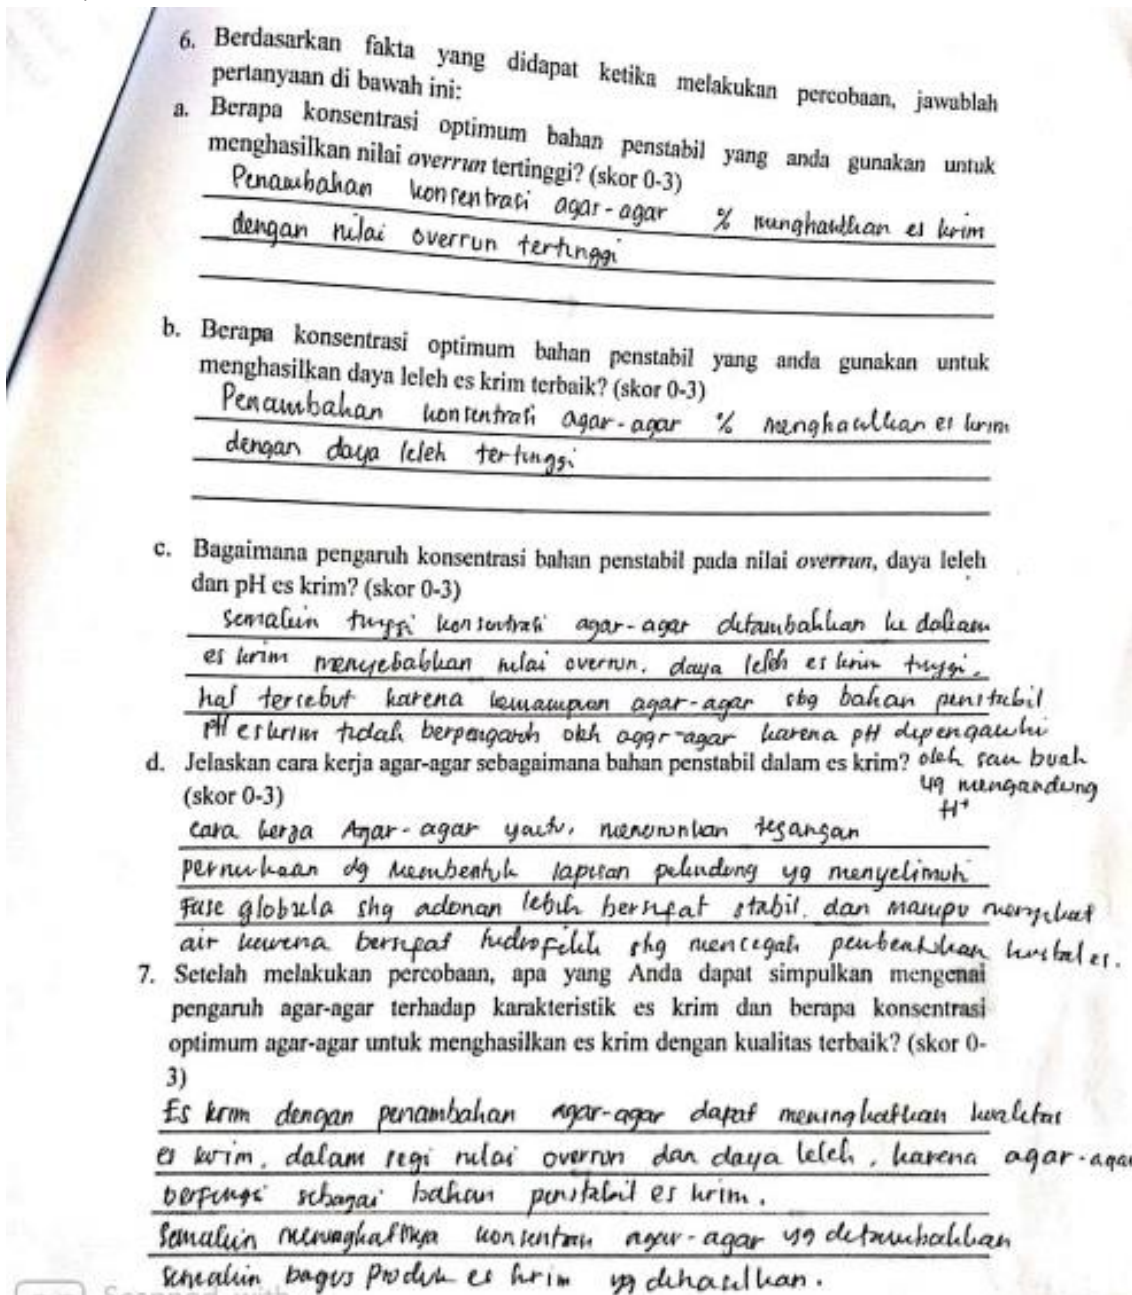 6. Berdasarkan fakta yang didapat ketika melakukan percobaan, jawablah
pertanyaan di bawah ini:
a. Berapa konsentrasi optimum bahan penstabil yang anda gunakan untuk
menghasilkan nilai overrun tertinggi? (skor 0-3)
Penambahan konsentrasi agar-agar % menghasilkan es krim
dengan nilai overrun tertinggi
b. Berapa konsentrasi optimum bahan penstabil yang anda gunakan untuk
menghasilkan daya leleh es krim terbaik? (skor 0-3)
Penambahan konsentrasi agar-agar % menghasilkan es krim
dengan daya leleh tertinggi
c. Bagaimana pengaruh konsentrasi bahan penstabil pada nilai overrun, daya leleh
dan pH es krim? (skor 0-3)
semakin tinggi konsentrasi agar-agar ditambahkan ke dalam
es krim menyebabkan nilai overrun, daya leleh es krim tinggi.
hal tersebut karena kemampuan agar-agar sbg bahan penstabil
pH es krim tidak berpengaruh oleh agar-agar karena pH dipengaruhi
oleh sari buah
yg mengandung
H+
d. Jelaskan cara kerja agar-agar sebagaimana bahan penstabil dalam es krim?
(skor 0-3)
cara kerja Agar-agar yaitu, menurunkan tegangan
permukaan dg membentuk lapisan pelindung yg menyelimuti
fase globula shg adonan lebih bersifat stabil. dan mampu mengikat
air karena bersifat hidrofilik shg mencegah pembentukan kristal es.
7. Setelah melakukan percobaan, apa yang Anda dapat simpulkan mengenai
pengaruh agar-agar terhadap karakteristik es krim dan berapa konsentrasi
optimum agar-agar untuk menghasilkan es krim dengan kualitas terbaik? (skor 0-
3)
Es krim dengan penambahan agar-agar dapat meningkatkan kualitas
es krim, dalam segi nilai overrun dan daya leleh, karena agar-agar
berfungsi sebagai bahan penstabil es krim.
Semakin meningkatnya konsentrasi agar-agar yg ditambahkan
semakin bagus produk es krim yg dihasilkan.